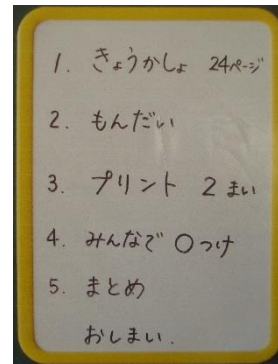 1. きょうかしょ 24ページ
2. もんだい
3. プリント 2まい
4. みんなで ○つけ
5. まとめ
おしまい.